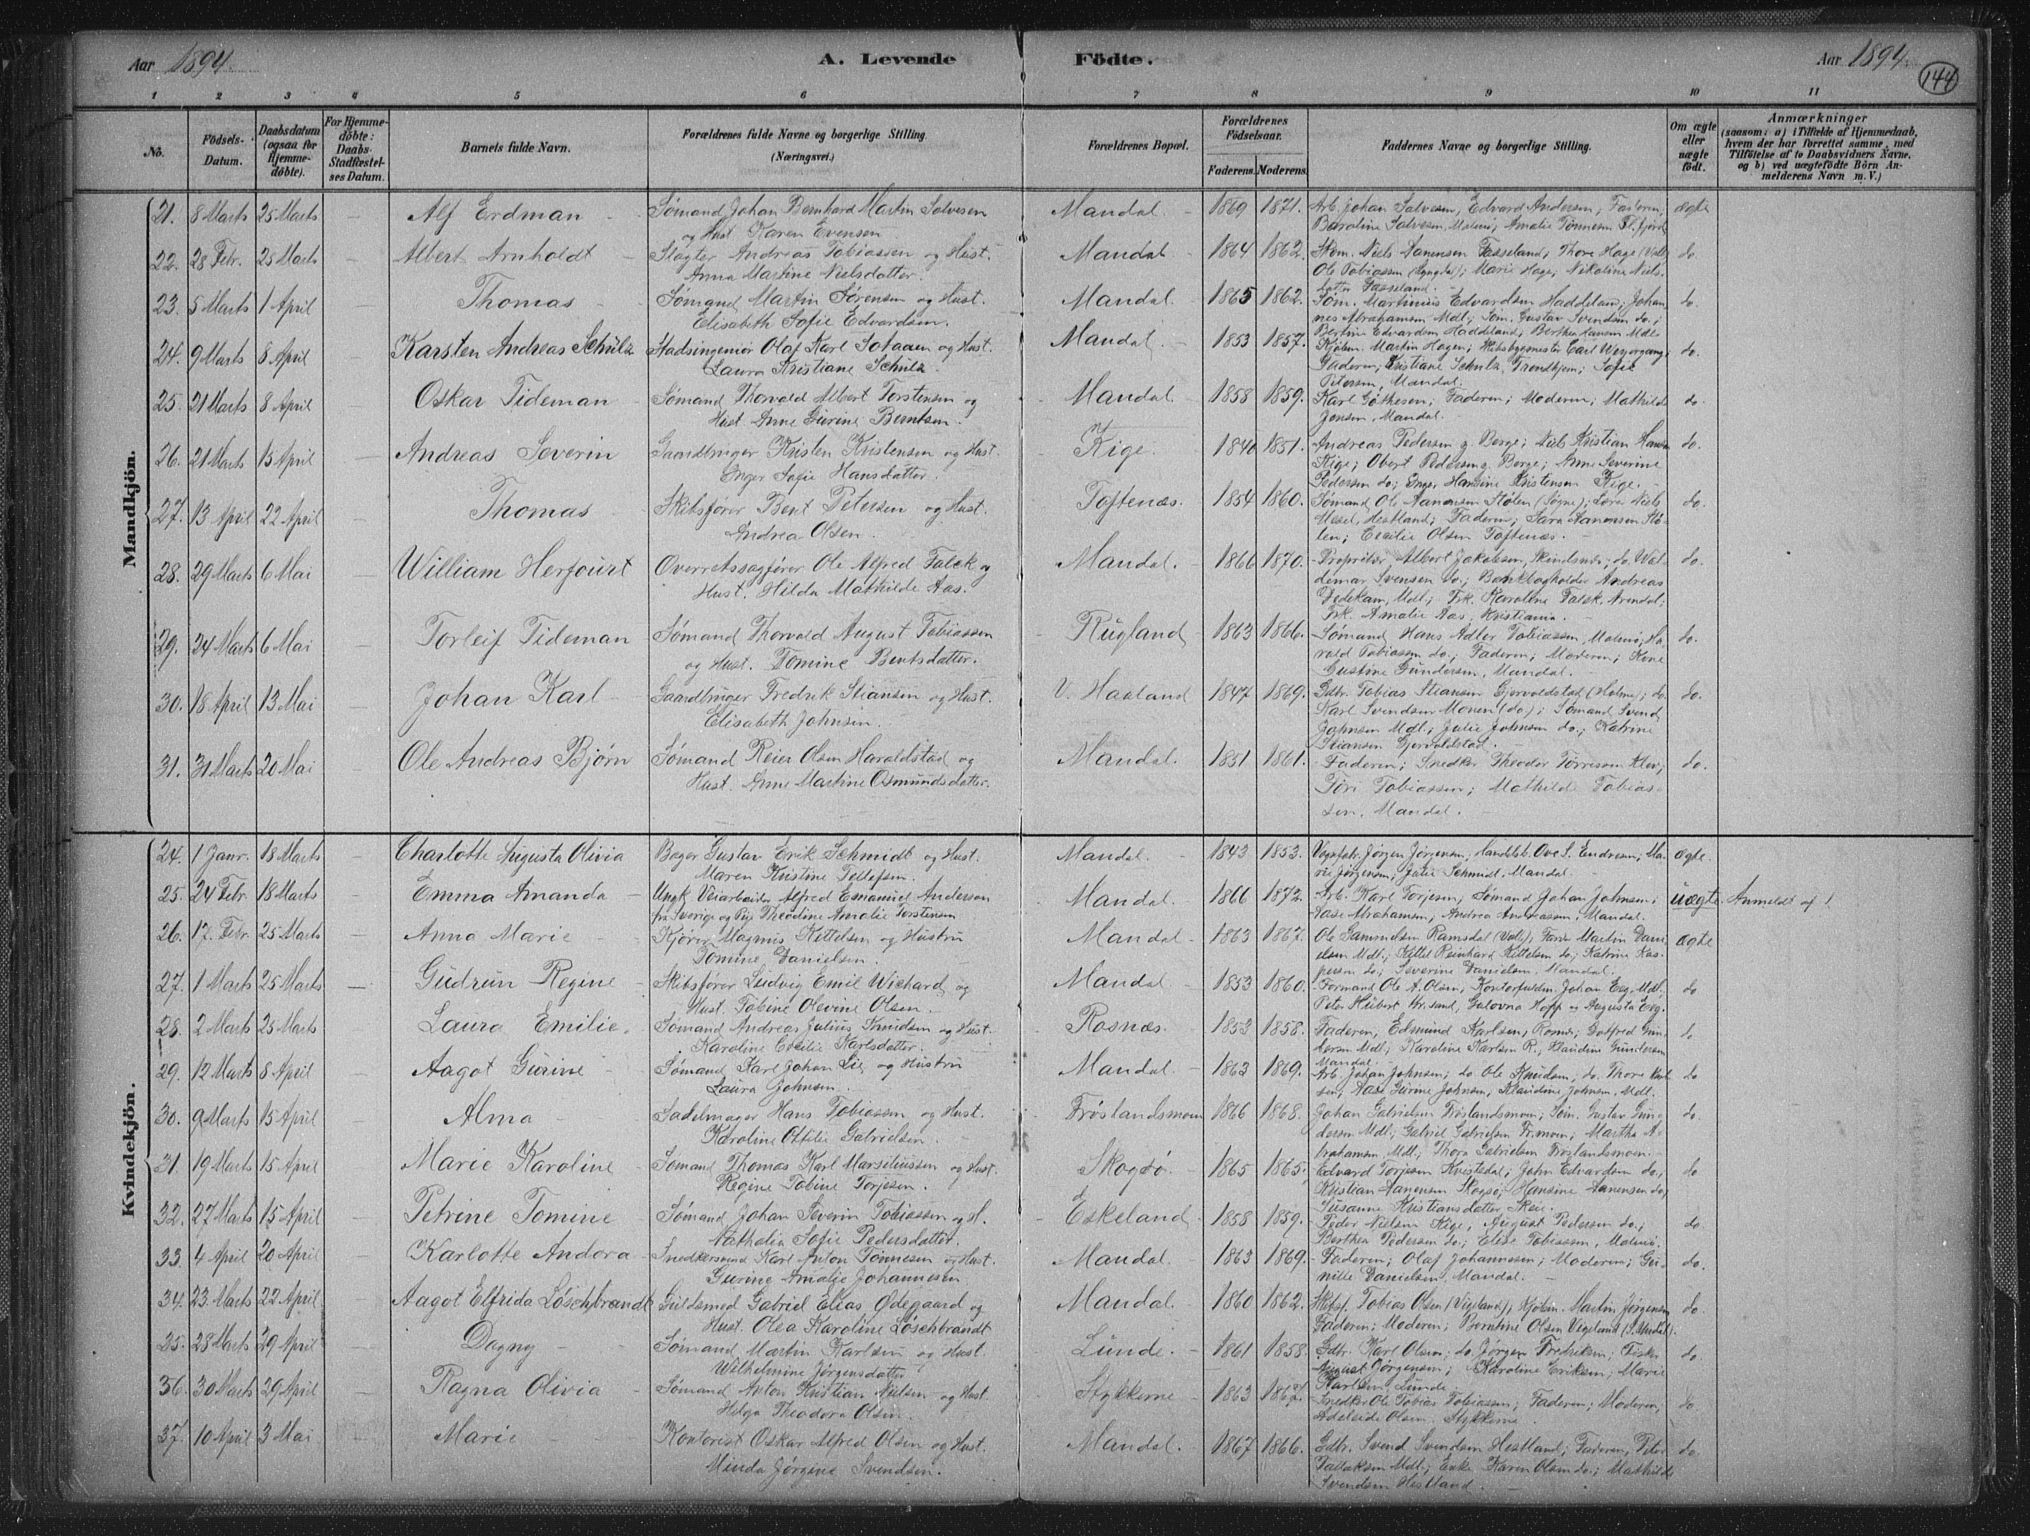 Aar 1894. A. Levende Födte. Aar 1894.
144
1 2 3 4 5 6 7 8 9 10 11
No. Födsels-Datum. Daabsdatum (ogsaa for Hjemmedöbte). For Hjemmedöbte: Daabs-Stadfæstelses Datum. Barnets fulde Navn. Forældrenes fulde Navne og borgerlige Stilling. (Næringsvei.) Forældrenes Bopæl. Forældrenes Födselsaar. Faderens. Moderens. Faddernes Navne og borgerlige Stilling. Om ægte eller uægte födt. Anmærkninger (saasom: a) i Tilfælde af Hjemmedaab, hvem der har forrettet samme, med Tilföielse af to Daabsvidners Navne, og b) ved uægtefödte Börn Anmelderens Navn m. V.)
Mandkjön.
21. 8 Marts 25 Marts — Alf Erdman Sømand Johan Bernhard Martin Salvesen Mandal 1869 1871. Arb. Johan Salvesen, Edvard Andersen, Faderen, ægte
og Hust. Karen Evensen Baroline Salvesen, Malmö, Amalie Tønnesen
22. 28 Febr. 25 Marts — Albert Arnholdt Slagter Andreas Tobiassen og Hust. Mandal 1864 1862. Niels Aanensen Fasseland; Thore Hage do.
Anna Martine Nielsdatter. Ole Tobiassen (Lyngdal); Marie Hage; Nikoline Niels-
datter Fasseland.
23. 5 Marts 1 April — Thomas Sømand Martin Sørensen og Hust. Mandal 1865 1862. Søm. Martinius Edvardsen Haddeland; Johan- do.
Elisabeth Sofie Edvardsen. nes Abrahamsen Mdl.; Søm. Gustav Svendsen do.;
Bertine Edvardsen Haddeland; Berthea Hansen Mdl.
24. 9 Marts 8 April — Karsten Andreas Schulz Stadsingeniør Olaf Karl Sohaan og Hust. Mandal. 1853 1857. Kjøbm. Martin Hagen; Skibsbygmester Carl do.
Laura Kristiane Schulz Faderen; Kristiane Schulz, Trondhjem; Sofie
Petersen, Mandal.
25. 21 Marts 8 April — Oskar Tideman Sømand Thorvald Albert Torstensen og Mandal. 1858 1859. Karl Gøthesen; Faderen; Moderen; Mathilde do.
Hust. Anne Gurine Berntsen. Jensen, Mandal.
26. 21 Marts 15 April — Andreas Severin Gaardbruger Kristen Kristensen og Hust. Kige. 1840 1851. Andreas Pedersen g. Berge; Niels Kristian Hansen do.
Enger Sofie Hansdatter. Kige; Obert Pedersen g. Berge; Anne Severine
Pedersen do; Enger Hansine Kristensen Kige.
27. 13 April 22 April — Thomas Skibsfører Bent Petersen og Hust. Toftenæs. 1854 1860. Sømand Ole Aanensen Stølen (Søgne); Tore Niels- do.
Andrea Olsen. Mesel, Hestland; Faderen; Sara Aanensen Stø-
len; Cecilie Olsen Toftenæs.
28. 29 Marts 6 Mai — William Herfourt Overretssagfører Ole Alfred Falck og Mandal. 1866 1870. Proprietær Albert Jakobsen, Skindsnes; do. Wal- do.
Hust. Hilda Mathilde Aas. demar Svensen do.; Bankbogholder Andreas
Dedekam, Mdl; Frk. Karoline Falck, Arendal;
Frk. Amalie Aas, Kristiania.
29. 24 Marts 6 Mai — Torleif Tideman Sømand Thorvald August Tobiassen Rugland 1863 1866. Sømand Hans Adler Tobiassen, Malmö; Ha- do.
og Hust. Tomine Bentsdatter. rald Tobiassen do.; Faderen; Moderen;
Gustine Gundersen, Mandal.
30. 18 April 13 Mai — Johan Karl Gaardbruger Fredrik Stiansen og Hust. V. Haaland 1847 1869. Gdbr. Tobias Stiansen Gjervoldstad (Holme); do. do.
Elisabeth Johnsen. Karl Svendsen Monen (do); Sømand Svend
Johnsen Mdl., Julie Johnsen do.; Katrine
Stiansen Gjervoldstad.
31. 31 Marts 20 Mai — Ole Andreas Bjørn Sømand Reier Olsen Haraldstad og Mandal. 1851 1861. Faderen; Snedker Theodor Tørresen do.
Hust. Anne Martine Osmundsdatter. Tøri Tobiassen; Mathilde Tobias-
sen, Mandal.
Kvindekjön.
24. 1 Janr. 18 Marts — Charlotte Augusta Olivia Bager Gustav Erik Schmidt og Hust. Mandal. 1843 1853. Vognfabr. Jørgen Jørgensen; Handelsb. Ove S. Endresen; Ma- ægte.
Maren Kristine Tellefsen. rie Jørgensen; Julie Schmidt, Mandal.
25. 24 Febr. 18 Marts — Emma Amanda Ungk. Veiarbeider Alfred Emanuel Andersson Mandal. 1866 1872. Arb. Karl Torjesen, Sømand Johan Johnsen; uægte. Anmeldt af 1.
fra Sverige og Pige Theodine Amalie Torstensen Aase Abrahamsen; Andrea Andreassen, Mandal.
26. 17 Febr. 25 Marts — Anna Marie Kjører Magnus Kittelsen og Hustru Mandal. 1863 1867. Ole Sammelsen Ramsdal (Valle), Martin Dani- ægte
Tomine Danielsen. elsen Mdl; Kittel Reinhard Kittelsen do; Katrine Kas-
persen do; Severine Danielsen Mandal.
27. 1 Marts 25 Marts — Gudrun Regine Skibsfører Ludvig Emil Wichard og Mandal. 1853 1860. Formand Ole A. Olsen; Kontorfuldm. Johan Erg. Mdl. do
Hust. Tobine Olevine Olsen. Peter Hubert Kr.sand, Gulovna Hoff og Augusta Erg.
28. 2 Marts 25 Marts — Laura Emilie. Sømand Andreas Julius Knudsen og Hust. Rosnæs. 1853 1858. Faderen; Edmund Karlsen, Rosnæs; Gotfred Gun- do
Karoline Cecilie Karlsdatter. dersen Mdl; Karoline Karlsen R.; Klaudine Gundersen
Mandal.
29. 12 Marts 8 April — Aagot Gurine Sømand Karl Johan Lie og Hustru Mandal. 1863 1869. Arb. Johan Johnsen; do Ole Knudsen, do. Thore Karl- do
Laura Johnsen. sen; Aase Gurine Johnsen, Klaudine Johnsen, Mdl.
30. 9 Marts 15 April — Alma Sadelmager Hans Tobiassen og Hust. Frøslandsmoen 1866 1868. Johan Gabrielsen Frøslandsmoen; Søm. Gustav Gun- do.
Karoline Ottilie Gabrielsen. dersen Mdl; Gabriel Gabrielsen Fr.moen; Martha A-
brahamsen Mdl; Thora Gabrielsen Frøslandsmoen.
31. 19 Marts 15 April — Marie Karoline Sømand Thomas Karl Marseliussen og Hust. Skogsø. 1865 1865. Edvard Torjesen Kvistedal; John Edvardsen do., do
Regine Tobine Torjesen. Kristian Aanensen Skogsø; Hansine Aanensen do;
Susanne Kristiansdatter Skei.
32. 27 Marts 15 April — Petrine Tomine Sømand Johan Severin Tobiassen og H. Eskeland 1858 1859. Peder Nielsen Kige, August Pedersen do.; do.
Nathalia Sofie Pedersdatter. Berthea Pedersen do; Elise Tobiassen, Malmö.
33. 4 April 20 April — Karlotte Andora Snedkersvend Karl Anton Tønnesen og Hust. Mandal 1863 1869. Faderen; Olaf Johannesen; Moderen; Gu- do.
Gurine Amalie Johannesen. nille Danielsen, Mandal.
34. 23 Marts 22 April — Aagot Elfrida Löschbrandt Guldsmed Gabriel Elias Ødegaard og Mandal. 1860 1862. Skibsf. Tobias Olsen (Vigeland); Kjøbm. Martin Jørgensen do.
Hust. Olea Karoline Löschbrandt Faderen; Moderen; Berntine Olsen Vigeland (S. Undal).
35. 28 Marts 29 April — Dagny Sømand Martin Karlsen og Hust. Lunde. 1861 1858. Gdbr. Karl Olsen; do. Jørgen Fredriksen; Fisker do.
Wilhelmine Jørgensdatter August Jørgensen; Karoline Eriksen; Marie
Karlsen Lunde.
36. 30 Marts 29 April — Ragna Olivia Sømand Anton Kristian Nielsen og Hust. Stykkerne. 1863 1862. Snedker Ole Tobias Tobiassen; Faderen; Moderen; do.
Helga Theodora Olsen. Adelside Olsen Stykkerne.
37. 10 April 3 Mai — Marie Kontorist Oskar Alfred Olsen og Hust. Mandal. 1867 1866. Gdbr. Svend Svendsen Hestland; Faderen, Peter do
Minda Jørgine Svendsen. Mdl; Enke Karen Olsen do; Mathilde
Svendsen Hestland.